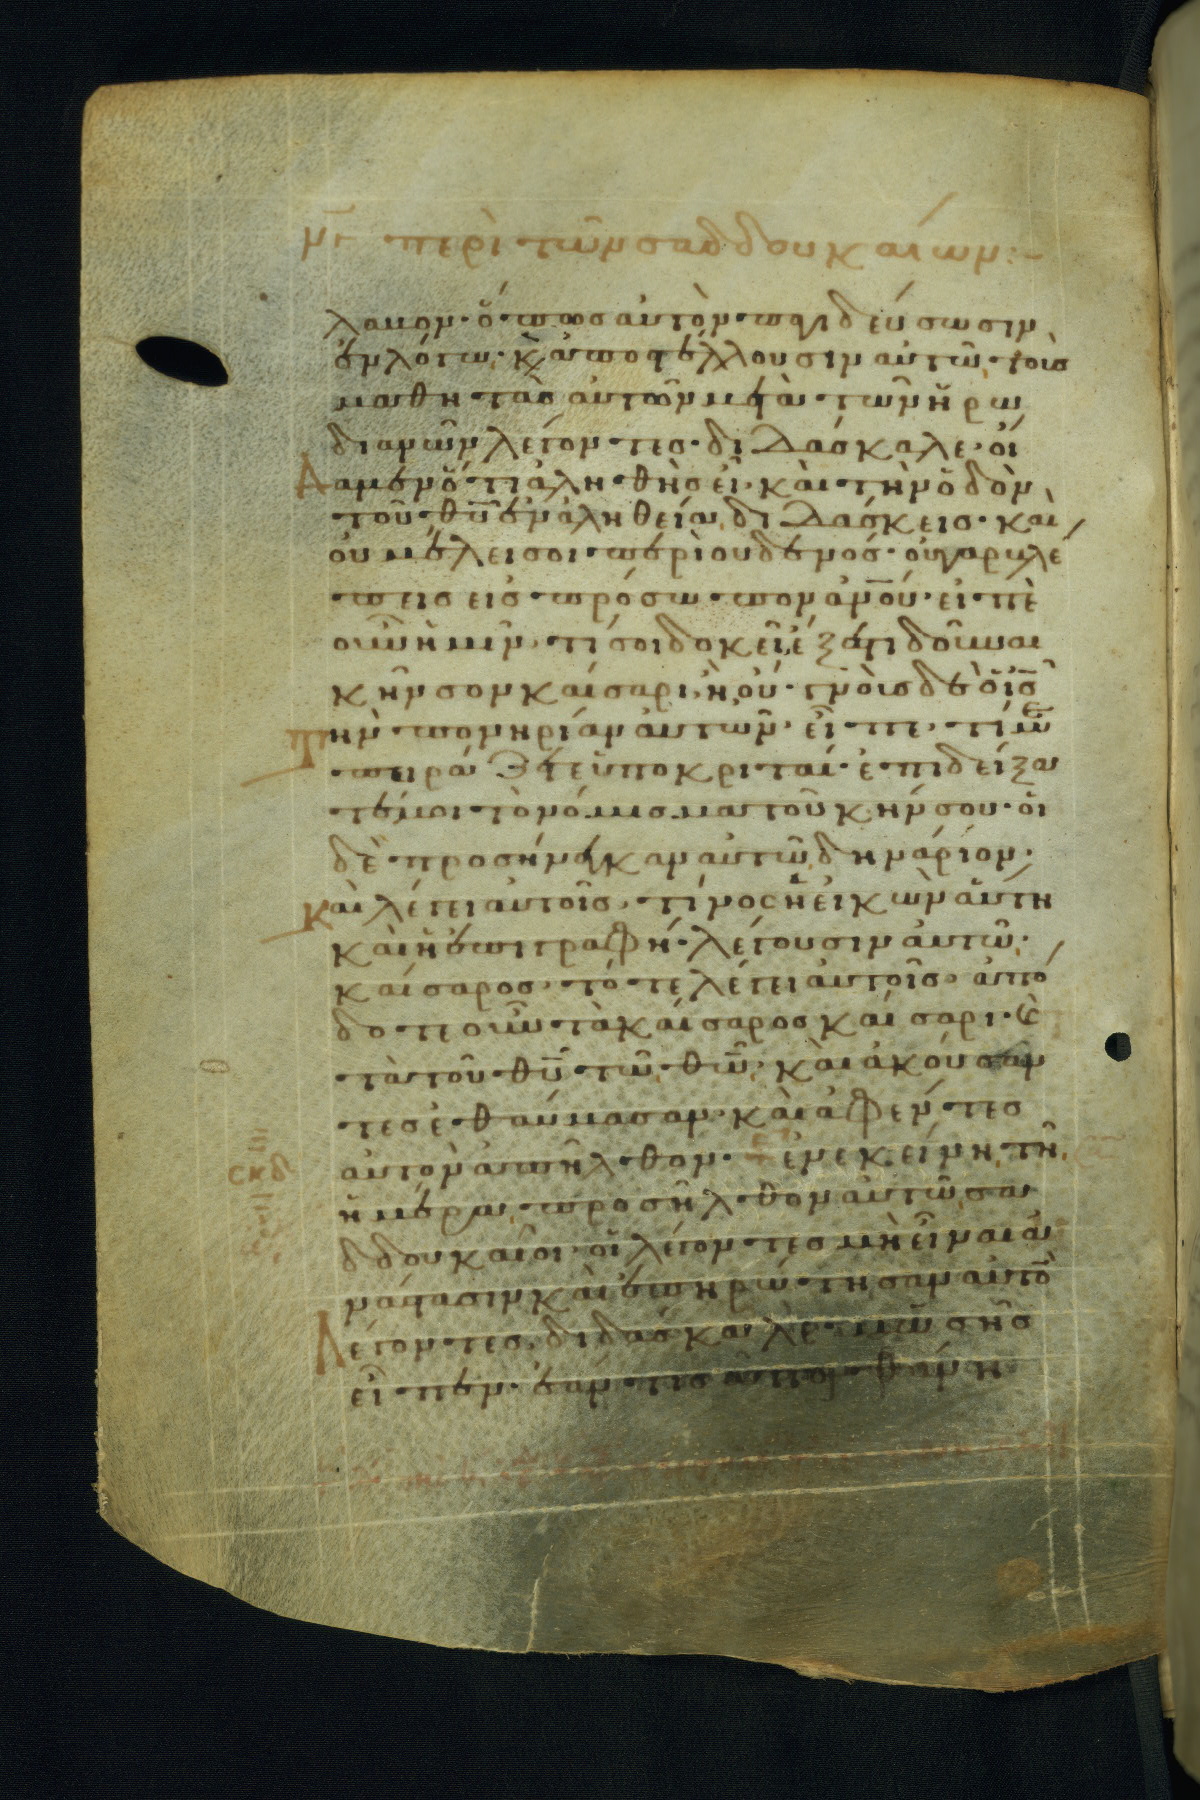 με περὶ τῶν σαδδουκαίων:-
λαιον· ὅπως αὐτὸν παγιδεύσωσιν
ἐν λόγω· κ ἀποστέλλουσιν αὐτῶ τοὺς
μαθητὰς αὐτῶν μετὰ τῶν ἡρω
διανῶν λέγοντες· διδάσκαλε· οἴ
δαμεν ὅτι ἀληθὴς εἶ· καὶ τὴν ὁδὸν
τοῦ θῦ ἐν ἀληθεία διδάσκεις· καὶ
οὐ μέλει σοι περὶ οὐδενός· οὐ γὰρ βλέ
πεις εἰς πρόσωπον ἀνου· εἰπὲ
οὖν ἡμῖν· τί σοι δοκεῖ ἔξεστι δοῦναι
κῆνσον καίσαρι· ἢ οὔ· γνοὺς δὲ ὁ ις
τὴν πονηρίαν αὐτῶν· εἶπε· τί με
πειράζετε ὑποκριταί· ἐπιδείξα
τέ μοι τὸ νόμισμα τοῦ κήνσου· οἱ
δὲ προσήνεγκαν αὐτῶ δηνάριον·
καὶ λέγει αὐτοῖς· τίνος ἡ εἰκὼν αὕτη
καὶ ἡ ἐπιγραφή· λέγουσιν αὐτῶ·
καίσαρος· τότε λέγει αὐτοῖς· ἀπό
δοτε οὖν τὰ καίσαρος καίσαρι· κ
τὰ τοῦ θῦ τῶ θῶ· καὶ ἀκούσαν
τες ἐθαύμασαν· καὶ ἀφέντες
αὐτὸν ἀπῆλθον· ἐν ἐκείνη τῆ
ἡμέρα προσῆλθον αὐτῶ σα
δδουκαῖοι· οἱ λέγοντες μὴ εἶναι ἀ
νάστασιν καὶ ἐπηρώτησαν αὐτὸ
λέγοντες· διδάσκαλε· μωσῆς
εἶπεν· ἐάν τις ἀποθάνη
σκδ